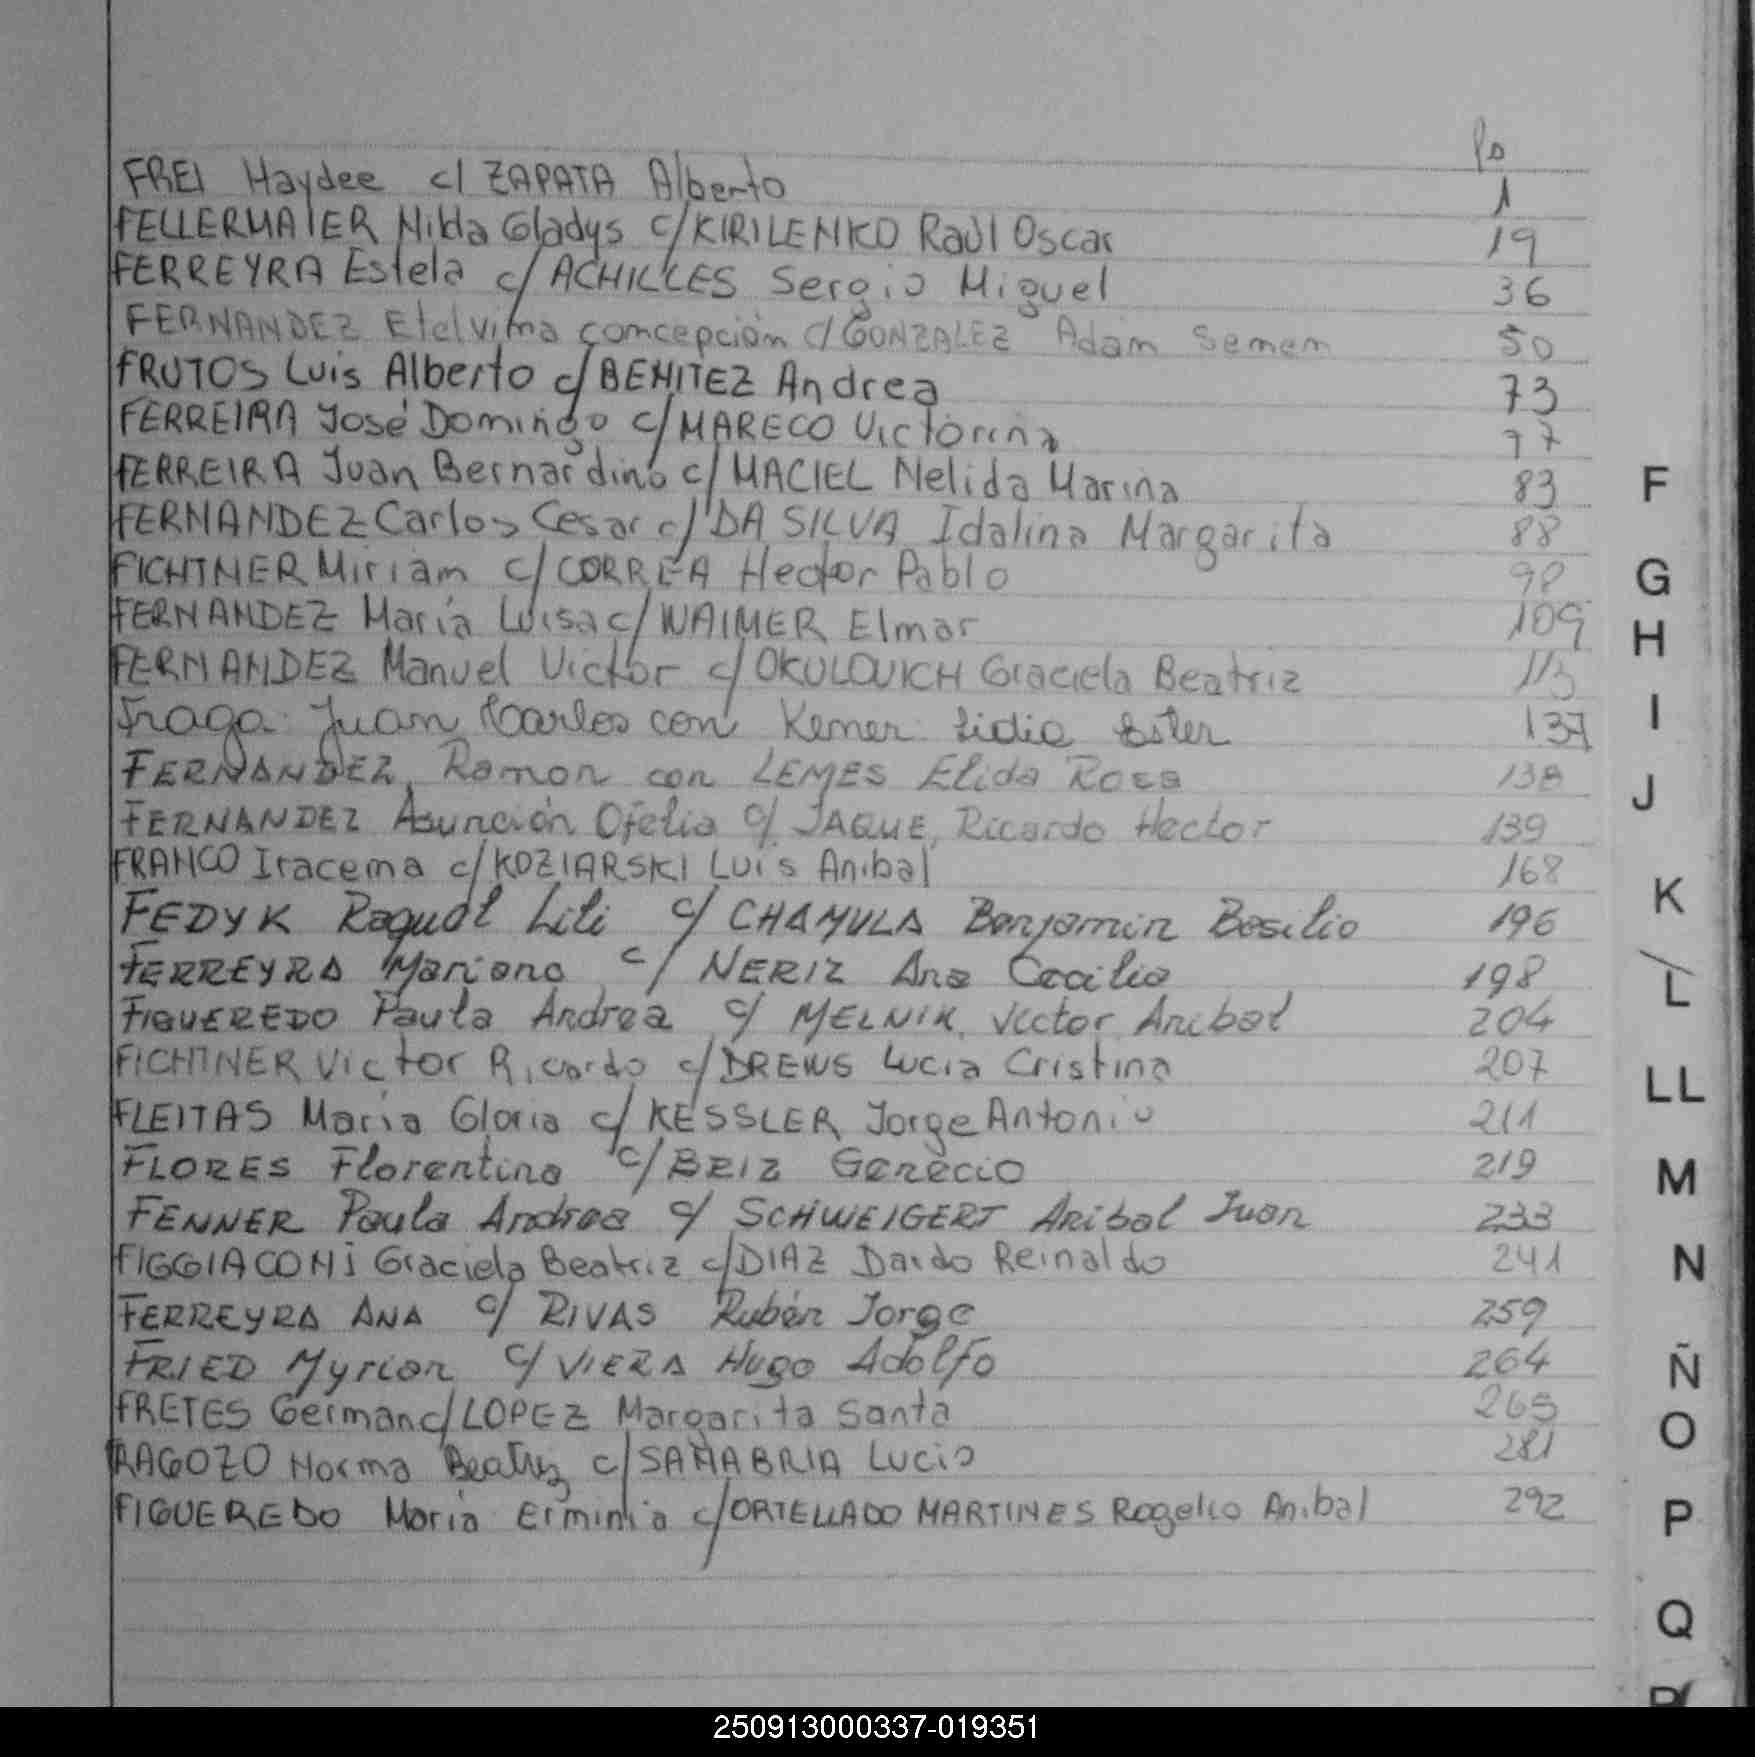 Fo
FREI Haydee c/ ZAPATA Alberto 1
FELLERMAIER Nilda Gladys c/ KIRILENKO Raúl Oscar 19
FERREYRA Estela c/ ACHILLES Sergio Miguel 36
FERNANDEZ Etelvina concepción c/ GONZALEZ Adam Semem 50
FRUTOS Luis Alberto c/ BENITEZ Andrea 73
FERREIRA José Domingo c/ MARECO Victorina 77
FERREIRA Juan Bernardino c/ MACIEL Nelida Marina 83
FERNANDEZ Carlos Cesar c/ DA SILVA Idalina Margarita 88
FICHTNER Miriam c/ CORREA Hector Pablo 98
FERNANDEZ María Luisa c/ WAIMER Elmar 109
FERNANDEZ Manuel Victor c/ OKULOVICH Graciela Beatriz 113
Fraga Juan Carlos con Kemer Lidia Ester 137
FERNANDEZ, Ramon con LEMES Elida Rosa 138
FERNANDEZ Asunción Ofelia c/ JAQUE, Ricardo Hector 139
FRANCO Iracema c/ KOZIARSKI Luis Anibal 168
FEDYK Raquel Lili c/ CHAMULA Benjamin Basilio 196
FERREYRA Mariano c/ NERIZ Ana Cecilia 198
FIGUEREDO Paula Andrea c/ MELNIK, Victor Anibal 204
FICHTNER Victor Ricardo c/ DREWS Lucia Cristina 207
FLEITAS María Gloria c/ KESSLER Jorge Antonio 211
FLORES Florentina c/ BRIZ Generio 219
FENNER Paula Andrea c/ SCHWEIGERT Anibal Juan 233
FIGGIACONI Graciela Beatriz c/ DIAZ Dardo Reinaldo 241
FERREYRA ANA c/ RIVAS Rubén Jorge 259
FRIED Myrian c/ VIERA Hugo Adolfo 264
FRETES German c/ LOPEZ Margarita Santa 265
RAGOZO Norma Beatriz c/ SANABRIA Lucio 281
FIGUEREDO María Erminia c/ ORTELLADO MARTINES Rogelio Anibal 292
F
G
H
I
J
K
L
LL
M
N
Ñ
O
P
Q
250913000337-019351